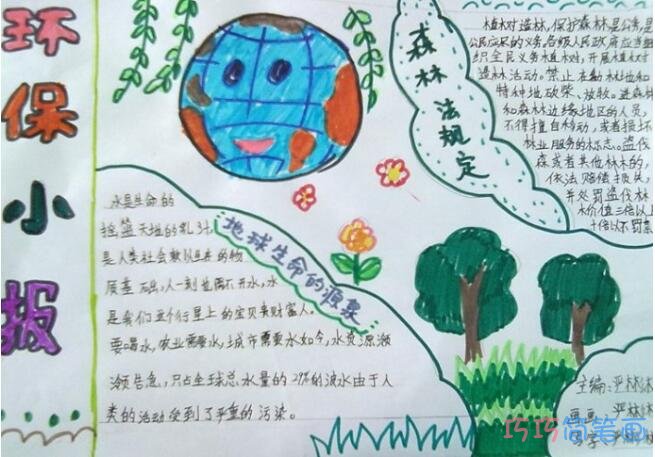 环保小报
森林法规定
植树造林,保护森林是公务,是
公民应尽的义务,各级人民政府应当组
织全民义务植树,开展植树
造林活动。禁止在幼林地和
特种地砍柴、放牧。进森林
和森林边缘地区的人员,
不得擅自移动,或者损坏
林业服务的标志。盗伐
森或者其他林木的,
依法赔偿损失,
并处罚盗伐林
木价值三倍以上
十倍以下罚款
地球生命的源泉
水是生命的
摇篮天地的乳汁
是人类社会赖以生存的物
质基础,人一刻也离不开水,水
是我们这个行星上的宝贝和财富人。
要喝水,农业需要水,城市需要水如今,水资源濒
濒告急,只占全球总水量的2%的淡水由于人
类的活动受到了严重的污染。
主编:严林沐
严林沐
巧巧简笔画